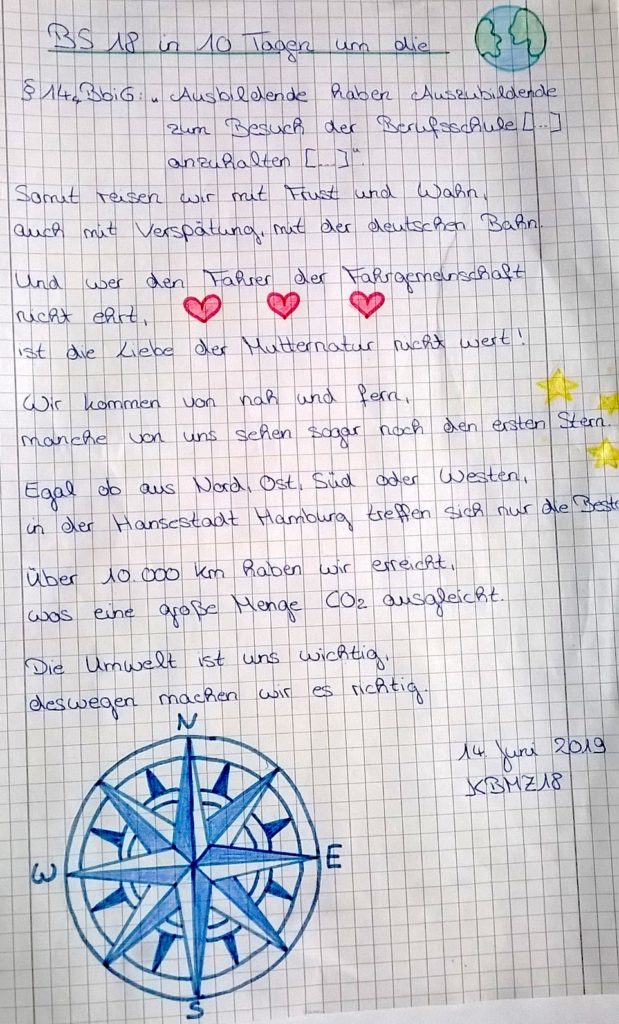 BS 18 in 10 Tagen um die
§ 14, BbiG: „Ausbildende haben Auszubildende
zum Besuch der Berufsschule [...]
anzuhalten [...]"
Somit reisen wir mit Frust und Wahn,
auch mit Verspätung, mit der deutschen Bahn.
Und wer den Fahrer der Fahrgemeinschaft
nicht ehrt,
ist die Liebe der Mutternatur nicht wert!
Wir kommen von nah und fern,
manche von uns sehen sogar noch den ersten Stern.
Egal ob aus Nord, Ost, Süd oder Westen,
in der Hansestadt Hamburg treffen sich nur die Beste
Über 10.000 km haben wir erreicht,
was eine große Menge CO2 ausgleicht.
Die Umwelt ist uns wichtig,
deswegen machen wir es richtig.
14. Juni 2019
KBMZ18
N
W
E
S